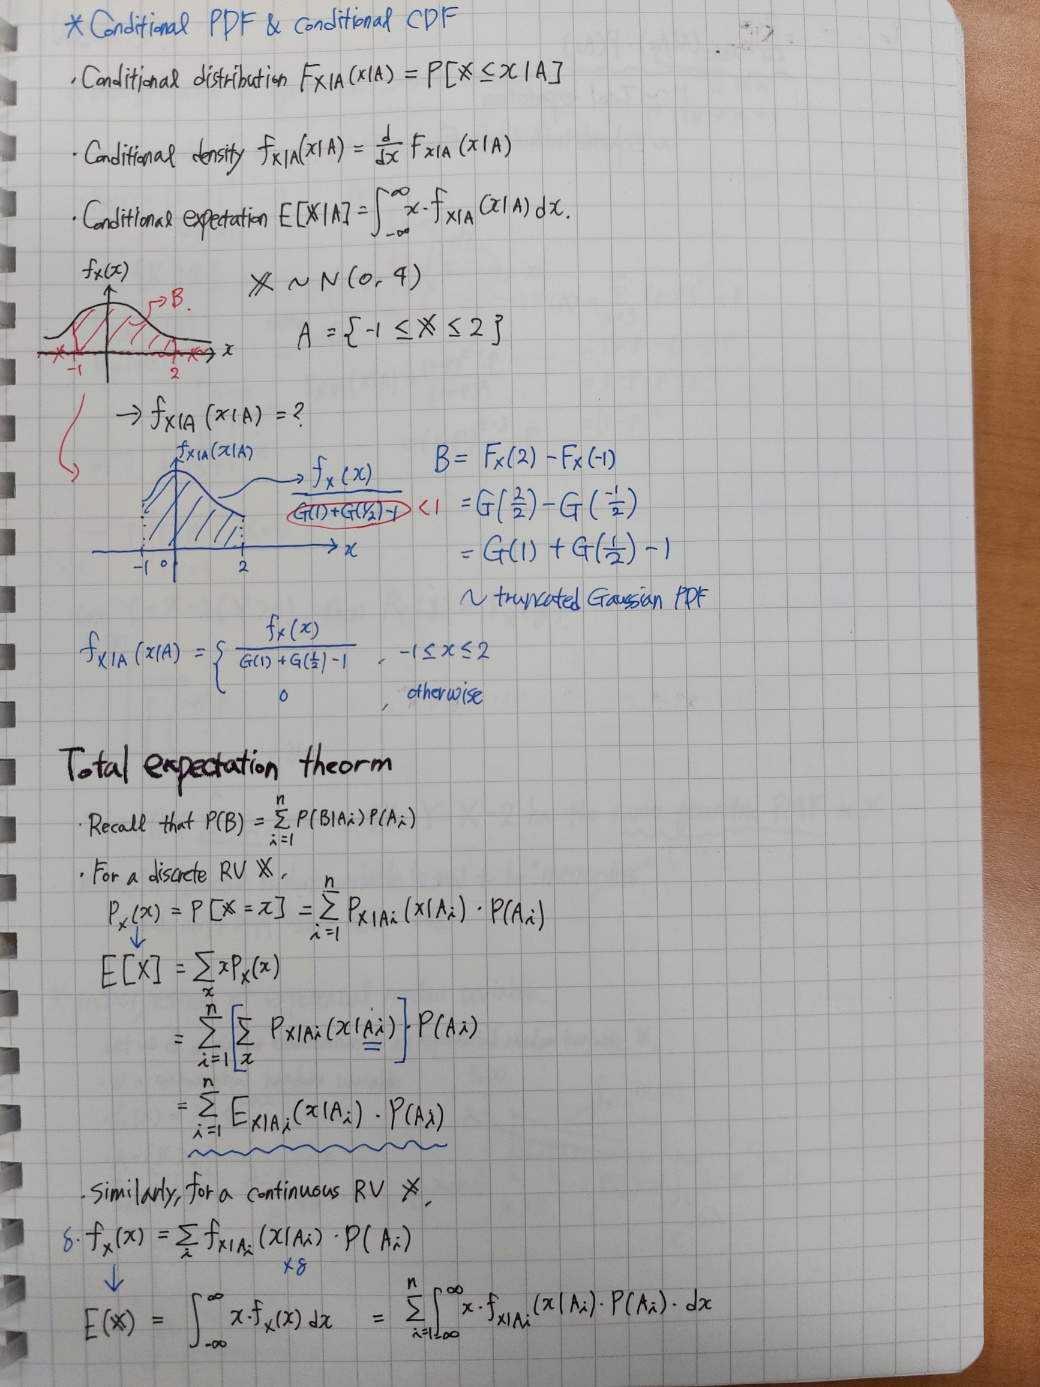 * Conditional PDF & conditional CDF
· Conditional distribution F_{X|A}(x|A) = P[X ≤ x | A]
· Conditional density f_{X|A}(x|A) = d/dx F_{X|A}(x|A)
· Conditional expectation E[X|A] = ∫_{-∞}^{∞} x·f_{X|A}(x|A) dx.
f_X(x)
→B.
X ~ N(0, 4)
A = {-1 ≤ X ≤ 2}
x
-1 2
→ f_{X|A}(x|A) = ?
f_{X|A}(x|A)
→ f_X(x) / (G(1)+G(1/2)-1) <1
B = F_X(2) - F_X(-1)
= G(2/2) - G(-1/2)
= G(1) + G(1/2) - 1
-1 0 2 x
~ truncated Gaussian PDF
f_{X|A}(x|A) = { f_X(x) / (G(1)+G(1/2)-1) , -1 ≤ x ≤ 2
0 , otherwise
Total expectation theorm
· Recall that P(B) = Σ_{i=1}^{n} P(B|A_i)P(A_i)
· For a discrete RV X,
P_X(x) = P[X = x] = Σ_{i=1}^{n} P_{X|A_i}(x|A_i) · P(A_i)
↓
E[X] = Σ_x xP_X(x)
= Σ_{i=1}^{n} [Σ_x P_{X|A_i}(x|A_i)]·P(A_i)
= Σ_{i=1}^{n} E_{X|A_i}(x|A_i) · P(A_i)
· Similarly, for a continuous RV X,
δ· f_X(x) = Σ_i f_{X|A_i}(x|A_i) · P(A_i)
xδ
↓
E(X) = ∫_{-∞}^{∞} x·f_X(x) dx = Σ_{i=1}^{n} ∫_{-∞}^{∞} x·f_{X|A_i}(x|A_i)·P(A_i)·dx